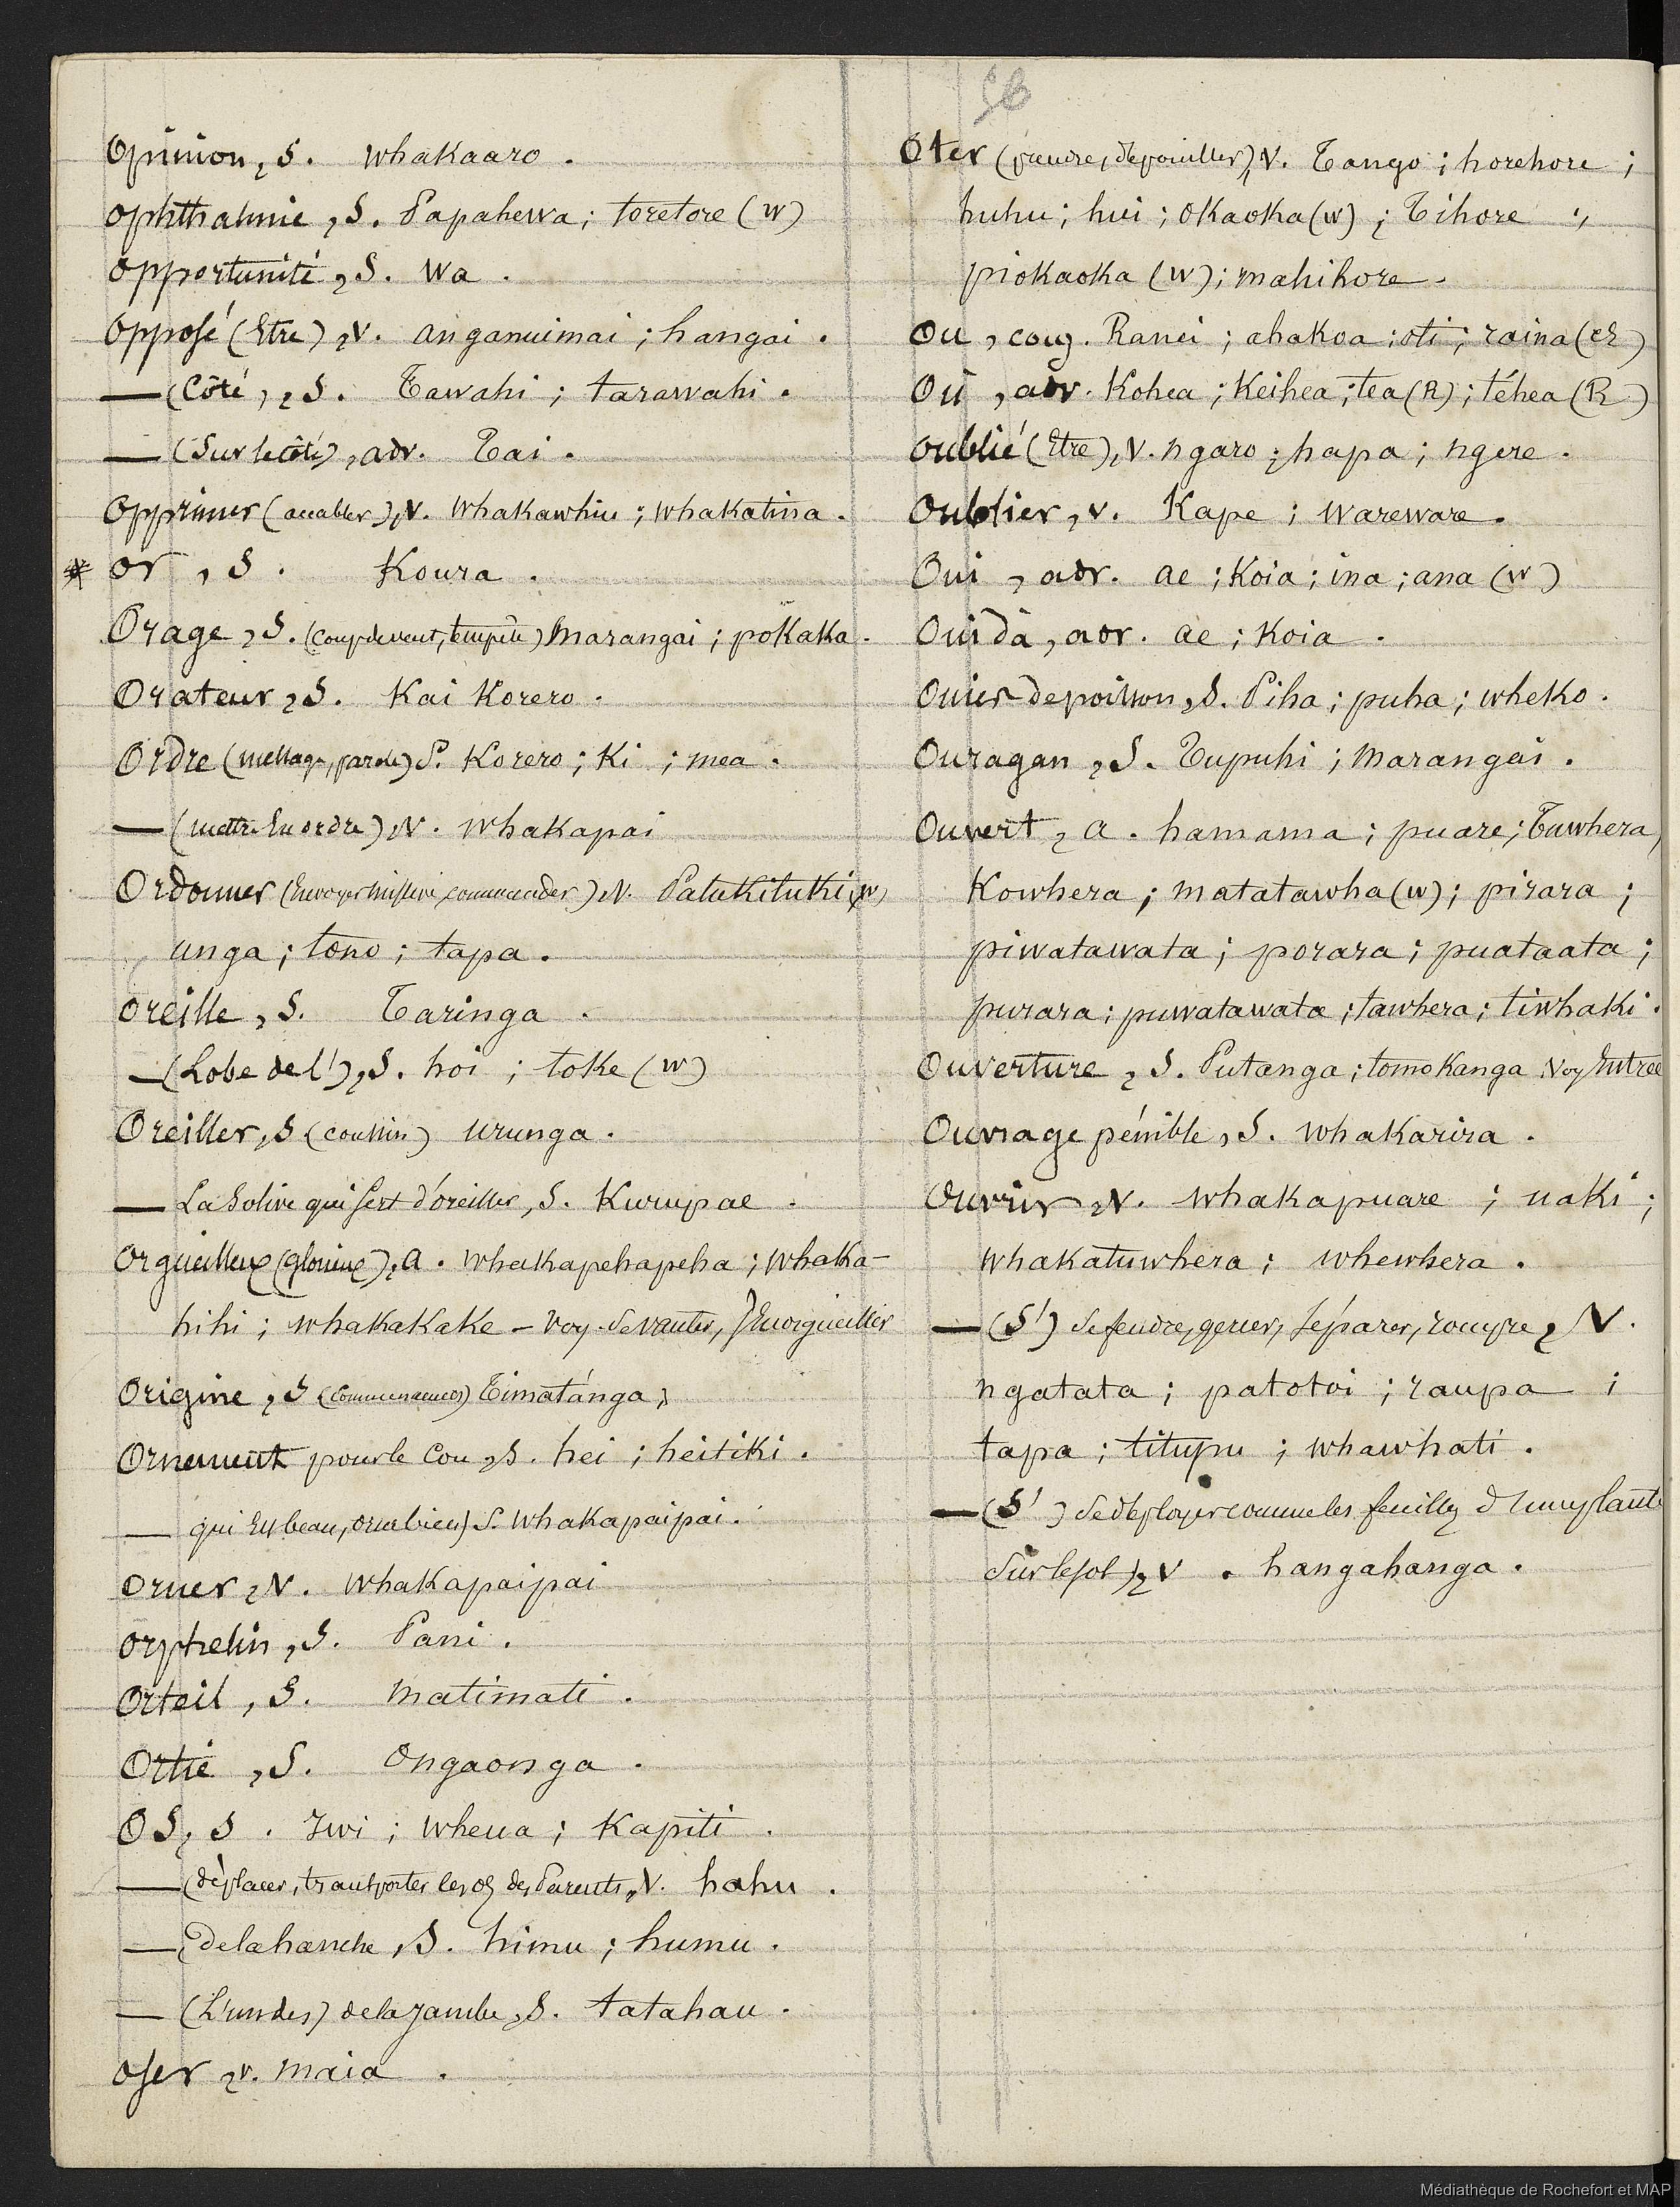 Opinion, S. whakaaro.
Ophthalmie, S. Papahewa; toretore (W)
Opportunité, S. Wa.
Opposé (Etre), V. anganuimai; hangai.
— (Côté), S. Tawahi; tarawahi.
— (Sur le côté), adv. Tai.
Opprimer (accabler), V. whakawhiu; whakatina.
* Or, S. Koura.
Orage, S. (coup de vent, tempête) Marangai; pokaka.
Orateur, S. Kai Korero.
Ordre (message, parole) S. Korero; Ki; mea.
— (mettre En ordre), V. whakapai
Ordonner (Envoyer missive, commander), V. Patukituki (W)
unga; tono; tapa.
Oreille, S. Taringa.
— (Lobe de l'), S. hoi; toke (W)
Oreiller, S (coussin) urunga.
— La solive qui sert d'oreiller, S. Kurupae.
Orgueilleux (glorieux), a. whakapehapeha; whaka-
hihi; whakakake - Voy. Se vanter, S'Enorgueillir
Origine, S (commencement) Timatánga;
Ornement pour le Cou, S. hei; heitiki.
— qui Embeau, S. whakapaipai.
Orner, V. whakapaipai
Orphelin, S. Pani.
Orteil, S. matimati.
Ortie, S. Ongaonga.
OS, S. Iwi; wheua; Kapiti.
— (déplacer, transporter les os des Parents, V. hahu.
— de la hanche, S. himu; humu.
— (L'un des) de la Jambe, S. tatahau.
Oser, V. maia.
56
Oter (prendre, dépouiller), V. Tango; horehore;
huhu; hui; okaoka (W); Tihore;
piokaoka (W); mahihore.
Ou, conj. Ranei; ahakoa; oti; raina (R)
Où, adv. Kohea; Keihea; tea (R); téhea (R)
Oublié (Etre), V. ngaro; hapa; ngere.
Oublier, V. Kape; wareware.
Oui, adv. ae; Koia; ina; ana (W)
Oui dà, adv. ae; Koia.
Ouies de poisson, S. Piha; puha; wheko.
Ouragan, S. Tupuhi; Marangai.
Ouvert, a. hamama; puare; Tuwhera,
Kowhera; matatawha (W); pirara;
piwatawata; porara; puataata;
purara; puwatawata; tawhera; tiwhaki.
Ouverture, S. Putanga; tomokanga Voy Entrée
Ouvrage pénible, S. whakarira.
Ouvrir, V. whakapuare; uaki;
whakatuwhera; whewhera.
— (S') se fendre, gercer, séparer, rompre, V.
ngatata; patotoi; raupa;
tapa; titupu; whawhati.
— (S') se déployer comme les feuilles d'une plante
sur le sol), V. hangahanga.
Médiathèque de Rochefort et MAP